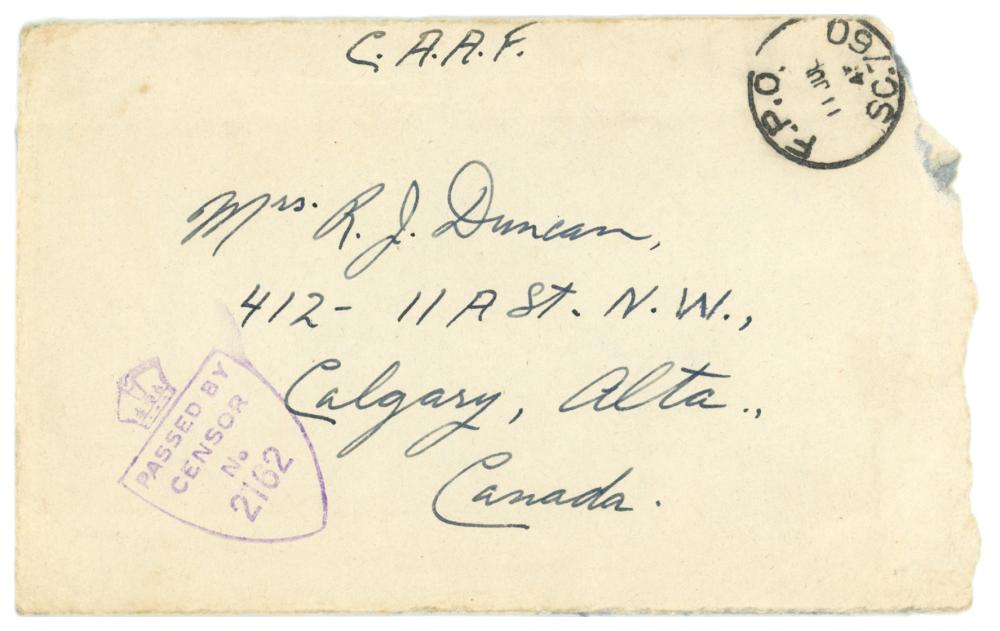 C. A. A. F.
F.P.O. SC.760
11 JUL 4
Mrs. R. J. Duncan,
412- 11 A St. N. W.,
Calgary, Alta.,
Canada.
PASSED BY
CENSOR
No
2162